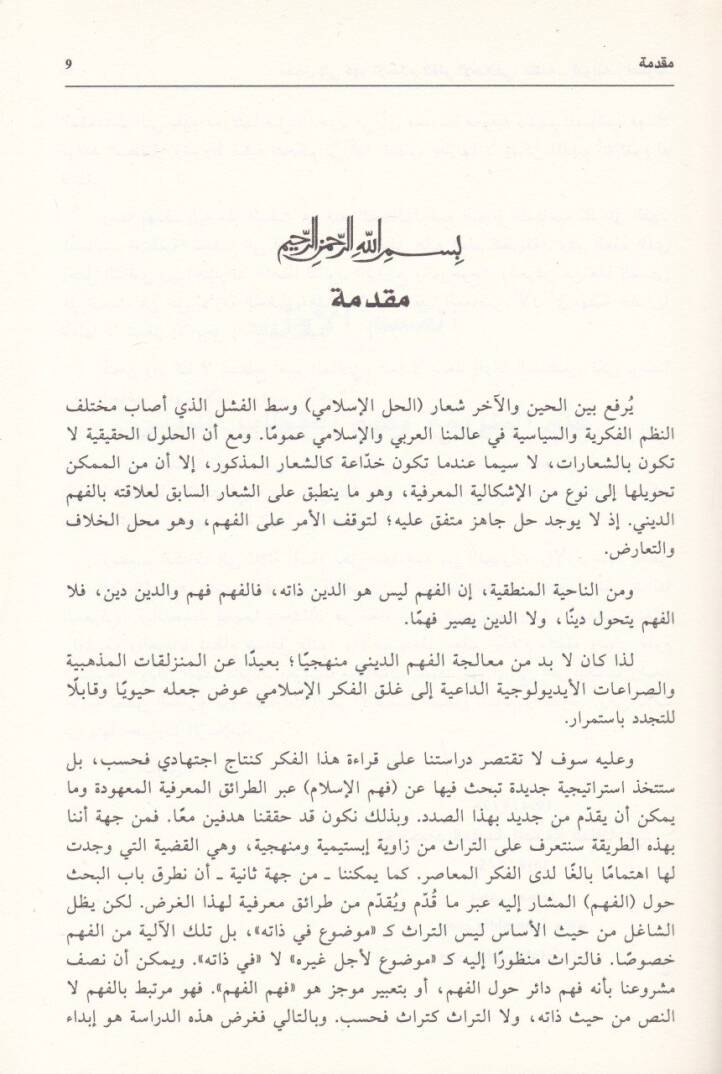 مقدمة 9
بسم الله الرحمن الرحيم
مقدمة
يُرفع بين الحين والآخر شعار (الحل الإسلامي) وسط الفشل الذي أصاب مختلف
النظم الفكرية والسياسية في عالمنا العربي والإسلامي عمومًا. ومع أن الحلول الحقيقية لا
تكون بالشعارات، لا سيما عندما تكون خدّاعة كالشعار المذكور، إلا أن من الممكن
تحويلها إلى نوع من الإشكالية المعرفية، وهو ما ينطبق على الشعار السابق لعلاقته بالفهم
الديني. إذ لا يوجد حل جاهز متفق عليه؛ لتوقف الأمر على الفهم، وهو محل الخلاف
والتعارض.
ومن الناحية المنطقية، إن الفهم ليس هو الدين ذاته، فالفهم فهم والدين دين، فلا
الفهم يتحول دينًا، ولا الدين يصير فهمًا.
لذا كان لا بد من معالجة الفهم الديني منهجيًا؛ بعيدًا عن المنزلقات المذهبية
والصراعات الأيديولوجية الداعية إلى غلق الفكر الإسلامي عوض جعله حيويًا وقابلًا
للتجدد باستمرار.
وعليه سوف لا تقتصر دراستنا على قراءة هذا الفكر كنتاج اجتهادي فحسب، بل
ستتخذ استراتيجية جديدة تبحث فيها عن (فهم الإسلام) عبر الطرائق المعرفية المعهودة وما
يمكن أن يقدّم من جديد بهذا الصدد. وبذلك نكون قد حققنا هدفين معًا. فمن جهة أننا
بهذه الطريقة سنتعرف على التراث من زاوية إبستيمية ومنهجية، وهي القضية التي وجدت
لها اهتمامًا بالغًا لدى الفكر المعاصر. كما يمكننا ـ من جهة ثانية ـ أن نطرق باب البحث
حول (الفهم) المشار إليه عبر ما قُدّم ويُقدّم من طرائق معرفية لهذا الغرض. لكن يظل
الشاغل من حيث الأساس ليس التراث كـ «موضوع في ذاته»، بل تلك الآلية من الفهم
خصوصًا. فالتراث منظورًا إليه كـ «موضوع لأجل غيره» لا «في ذاته». ويمكن أن نصف
مشروعنا بأنه فهم دائر حول الفهم، أو بتعبير موجز هو «فهم الفهم». فهو مرتبط بالفهم لا
النص من حيث ذاته، ولا التراث كتراث فحسب. وبالتالي فغرض هذه الدراسة هو إبداء